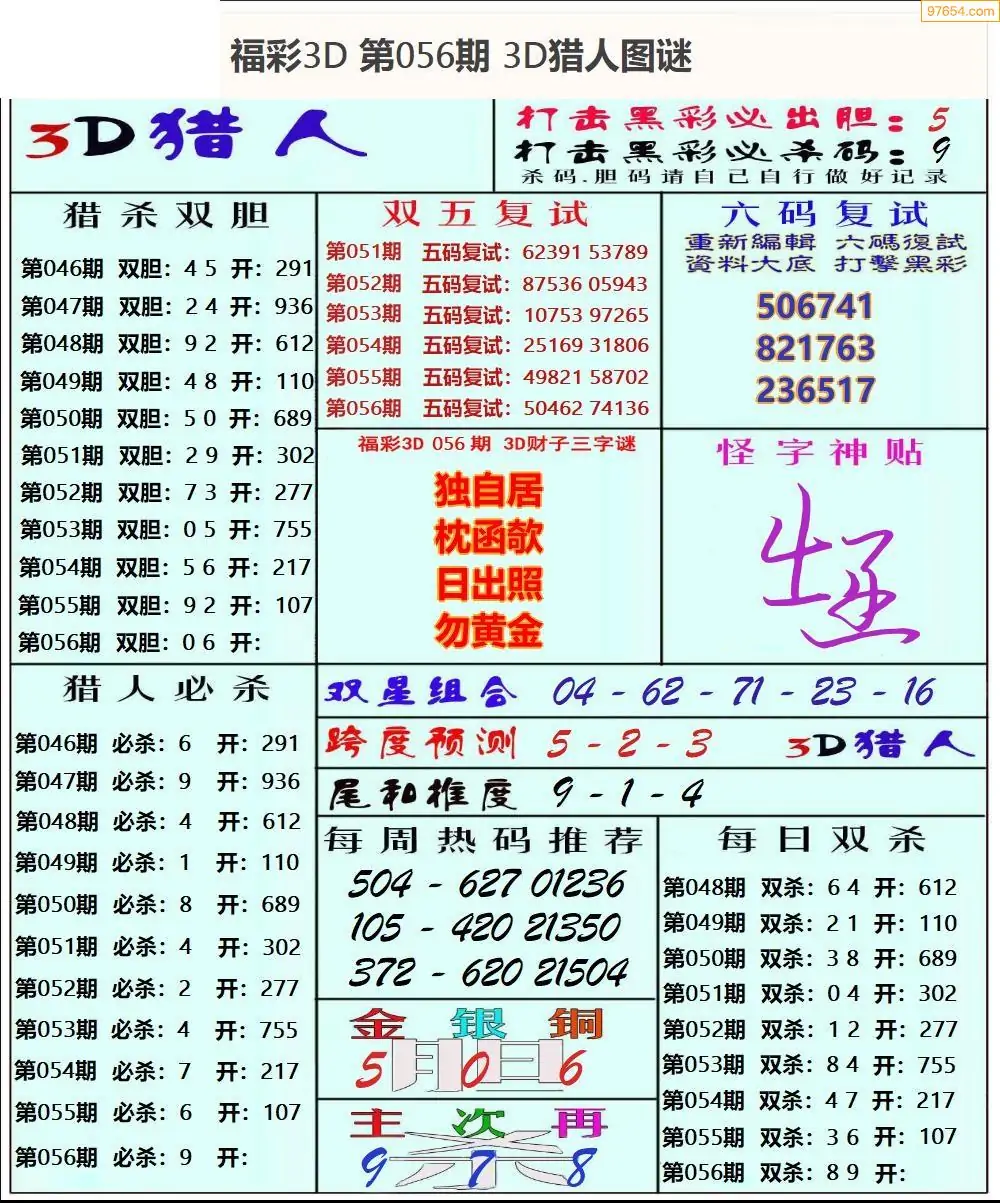 97654.com
福彩3D 第056期 3D猎人图谜
3D猎人
打击黑彩必出胆：5
打击黑彩必杀码：9
杀码.胆码请自己自行做好记录
猎杀双胆
第046期 双胆：4 5 开：291
第047期 双胆：2 4 开：936
第048期 双胆：9 2 开：612
第049期 双胆：4 8 开：110
第050期 双胆：5 0 开：689
第051期 双胆：2 9 开：302
第052期 双胆：7 3 开：277
第053期 双胆：0 5 开：755
第054期 双胆：5 6 开：217
第055期 双胆：9 2 开：107
第056期 双胆：0 6 开：
双五复试
第051期 五码复试：62391 53789
第052期 五码复试：87536 05943
第053期 五码复试：10753 97265
第054期 五码复试：25169 31806
第055期 五码复试：49821 58702
第056期 五码复试：50462 74136
六码复试
重新編輯 六碼復試
資料大底 打擊黑彩
506741
821763
236517
福彩3D 056 期 3D财子三字谜
独自居
枕函欹
日出照
勿黄金
怪字神贴
猎人必杀
第046期 必杀：6 开：291
第047期 必杀：9 开：936
第048期 必杀：4 开：612
第049期 必杀：1 开：110
第050期 必杀：8 开：689
第051期 必杀：4 开：302
第052期 必杀：2 开：277
第053期 必杀：4 开：755
第054期 必杀：7 开：217
第055期 必杀：6 开：107
第056期 必杀：9 开：
双星组合 04 - 62 - 71 - 23 - 16
跨度预测 5 - 2 - 3 3D猎人
尾和推度 9 - 1 - 4
每周热码推荐
504 - 627 01236
105 - 420 21350
372 - 620 21504
金银铜
胆
5 0 6
主次再
杀
9 7 8
每日双杀
第048期 双杀：6 4 开：612
第049期 双杀：2 1 开：110
第050期 双杀：3 8 开：689
第051期 双杀：0 4 开：302
第052期 双杀：1 2 开：277
第053期 双杀：8 4 开：755
第054期 双杀：4 7 开：217
第055期 双杀：3 6 开：107
第056期 双杀：8 9 开：